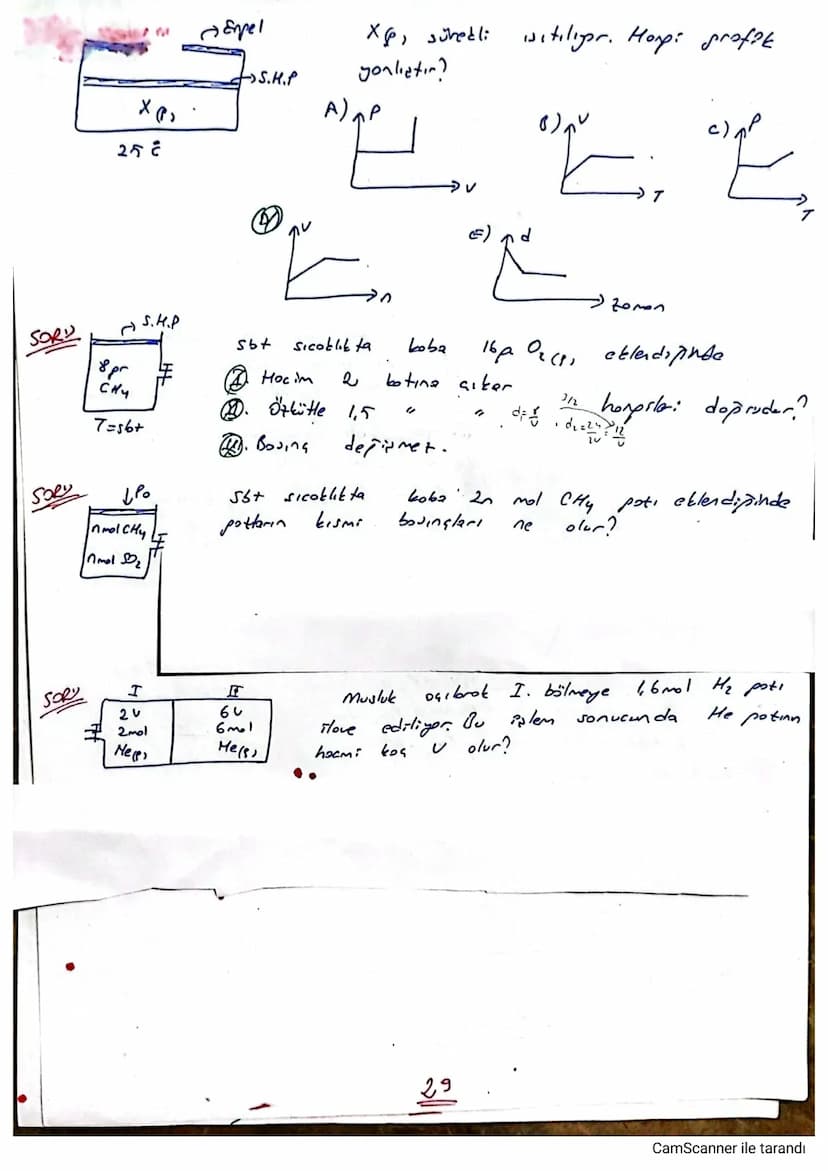 Engel
X(g) sürekli ısıtılıyor. Hangi grafik
yanlıştır?
S.H.P
X(g)
25 °C
A) P
V
B) V
T
C) P
T
D) V
n
E) d
zaman
SORU
S.H.P
8 gr
CH4
T=sbt
sbt sıcaklıkta kaba 16g O2(g) eklendiğinde
I. Hacim 2 katına çıkar
II. Özkütle 1,5 " " d1=8/V 3/2 d2=24/2V=12/V hangileri doğrudur?
III. Basınç değişmez.
SORU
↓P0
n mol CH4
n mol SO2
Sbt sıcaklıkta kaba 2n mol CH4 gazı eklendiğinde
gazların kısmi basınçları ne olur?
SORU
I II
2V 6V
2mol 6mol
Ne(g) He(g)
Musluk açılarak I. bölmeye 1,6mol H2 gazı
ilave ediliyor. Bu işlem sonucunda He gazının
hacmi kaç V olur?
29
CamScanner ile tarandı